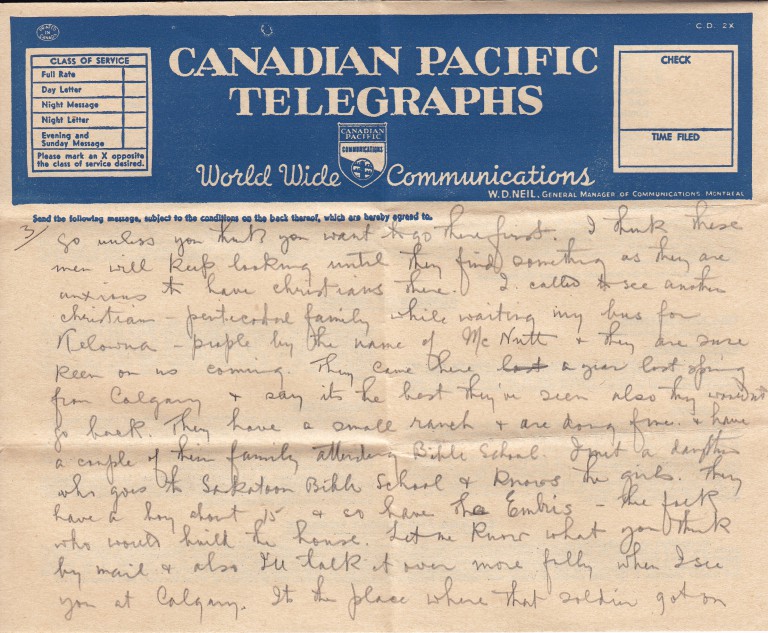 C.D. 2X
CLASS OF SERVICE
Full Rate
Day Letter
Night Message
Night Letter
Evening and
Sunday Message
Please mark an X opposite
the class of service desired.
CANADIAN PACIFIC
TELEGRAPHS
CANADIAN
PACIFIC
COMMUNICATIONS
World Wide Communications
CHECK
TIME FILED
W.D. NEIL, GENERAL MANAGER OF COMMUNICATIONS, MONTREAL
Send the following message, subject to the conditions on the back thereof, which are hereby agreed to.
3/ go unless you think you want to go there first. I think these
men will keep looking until they find something as they are
anxious to have christians there. I called to see another
christian - penticostal family while waiting my bus for
Kelowna - people by the name of McNutt & they are sure
keen on us coming. They came there last a year last spring
from Calgary & say its the best they've seen also they wouldn't
go back. They have a small ranch & are doing fine. & have
a couple of their family attending Bible School. I met a daughter
who goes to Saskatoon Bible School & knows the girls. They
have a boy about 15 & so have the Embris - the folk
who would build the house. Let me know what you think
by mail & also I'll talk it over more fully when I see
you at Calgary. Its the place where that soldier got on